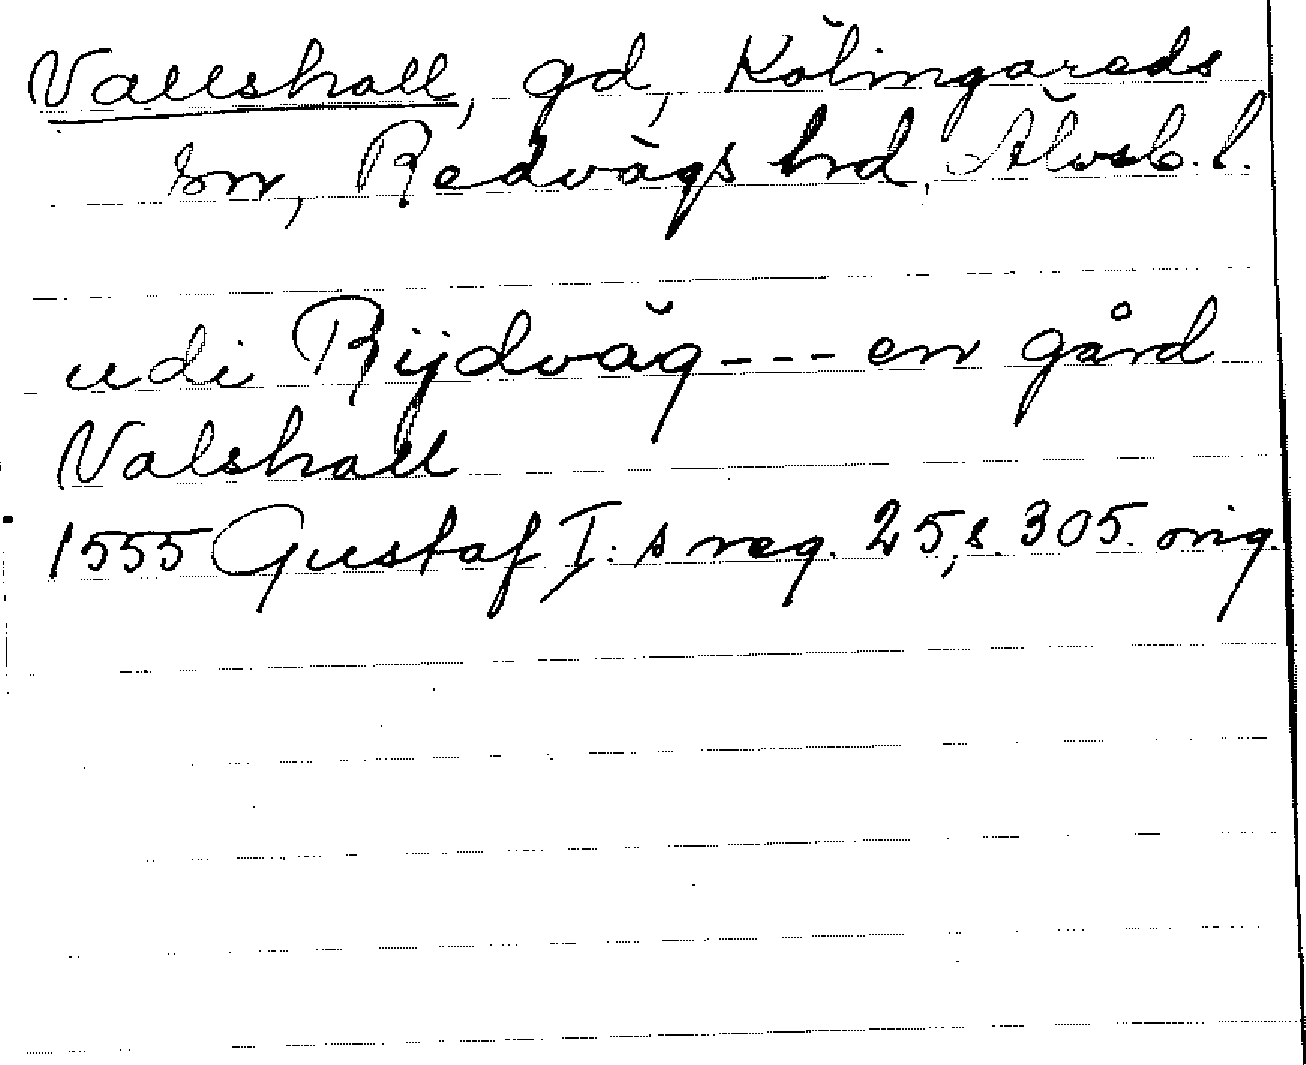 Vallshall, gd, Kölingareds
sn, Redvägs hrd, Älvsb. l.
udi Rijdväg --- en gård
Valshall
1555 Gustaf I:s reg. 25, s. 305. orig.